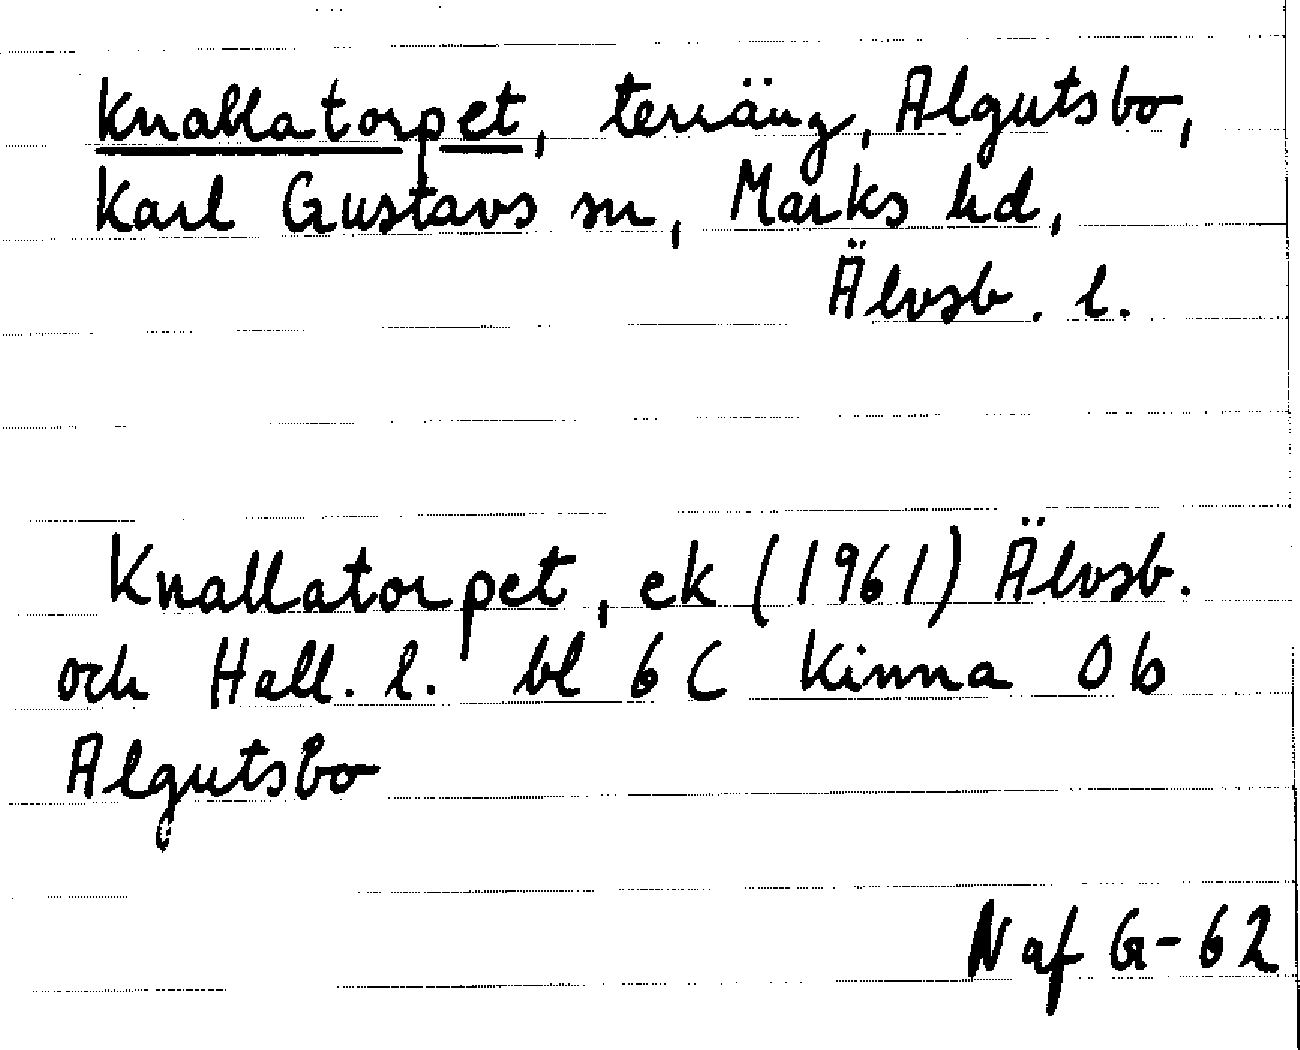 Knallatorpet, terräng, Algutsbo,
Karl Gustavs sn, Marks hd,
Älvsb. l.
Knallatorpet, ek (1961) Älvsb.
och Hall. l. bl 6 C Kinna 0 b
Algutsbo
N af G-62